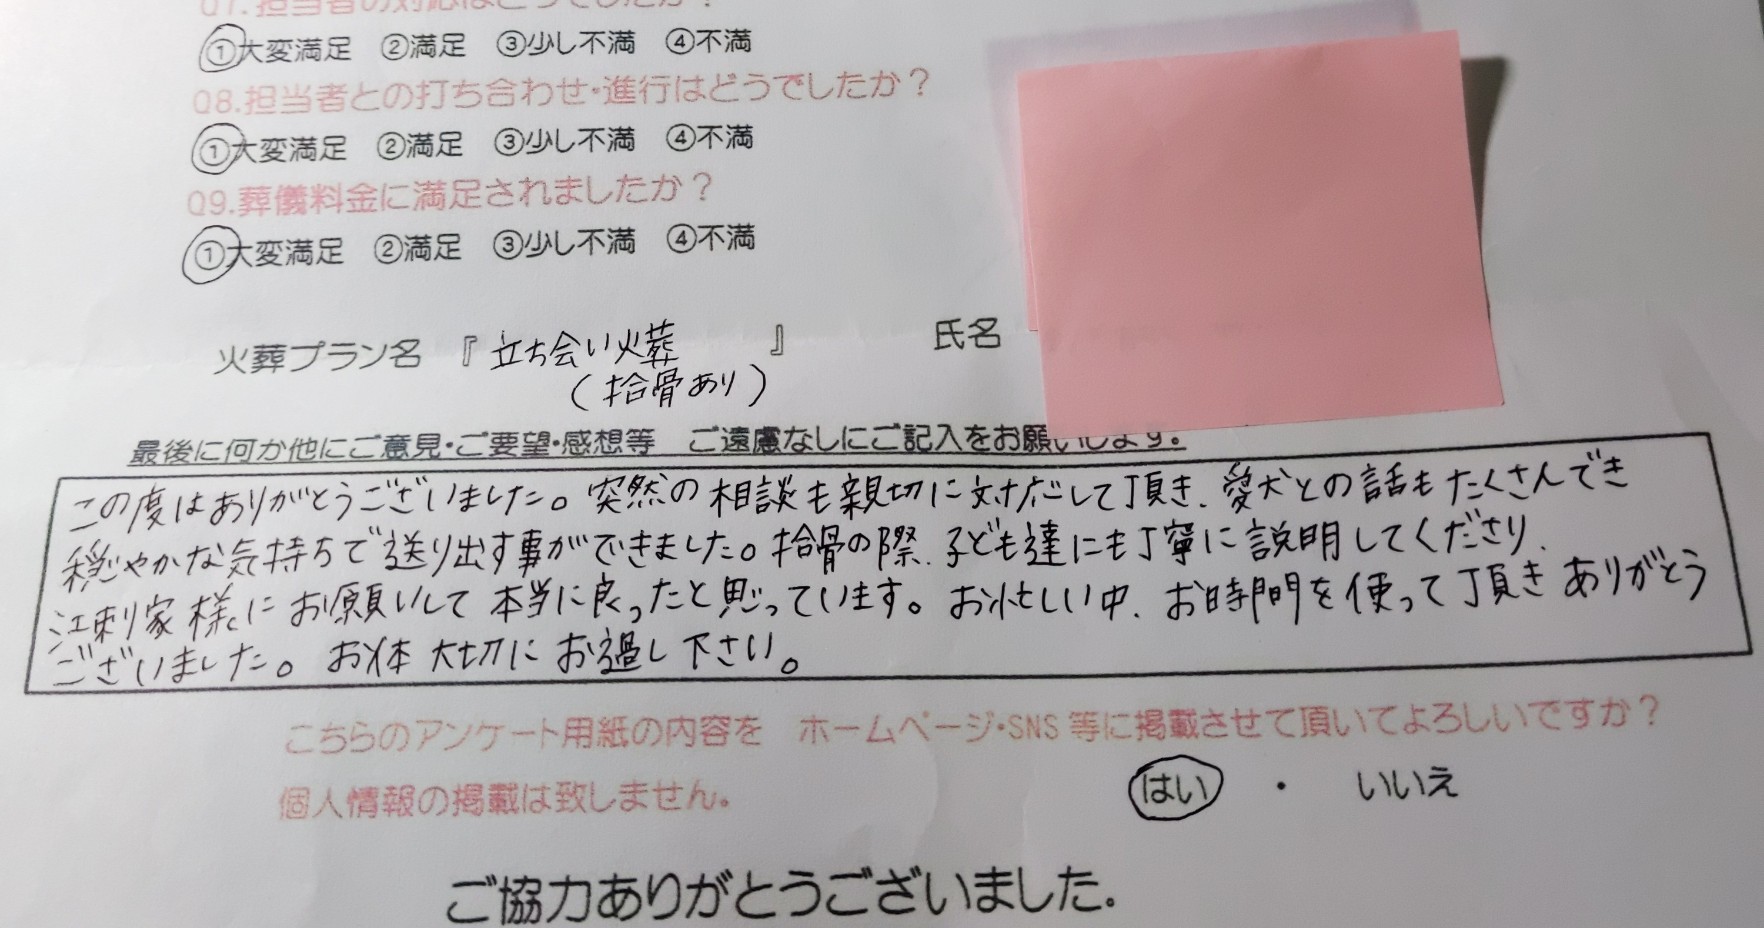 Q7.担当者の対応はどうでしたか？
①大変満足 ②満足 ③少し不満 ④不満
Q8.担当者との打ち合わせ・進行はどうでしたか？
①大変満足 ②満足 ③少し不満 ④不満
Q9.葬儀料金に満足されましたか？
①大変満足 ②満足 ③少し不満 ④不満
火葬プラン名 『立ち会い火葬 』 氏名
（拾骨あり）
最後に何か他にご意見・ご要望・感想等 ご遠慮なしにご記入をお願いします。
この度はありがとうございました。突然の相談も親切に対応して頂き、愛犬との話もたくさんでき
穏やかな気持ちで送り出す事ができました。拾骨の際、子ども達にも丁寧に説明してくださり、
江刺家様にお願いして本当に良ったと思っています。お忙しい中、お時間を使って頂きありがとう
ございました。お体大切にお過し下さい。
こちらのアンケート用紙の内容を ホームページ・SNS等に掲載させて頂いてよろしいですか？
個人情報の掲載は致しません。 はい ・ いいえ
ご協力ありがとうございました。